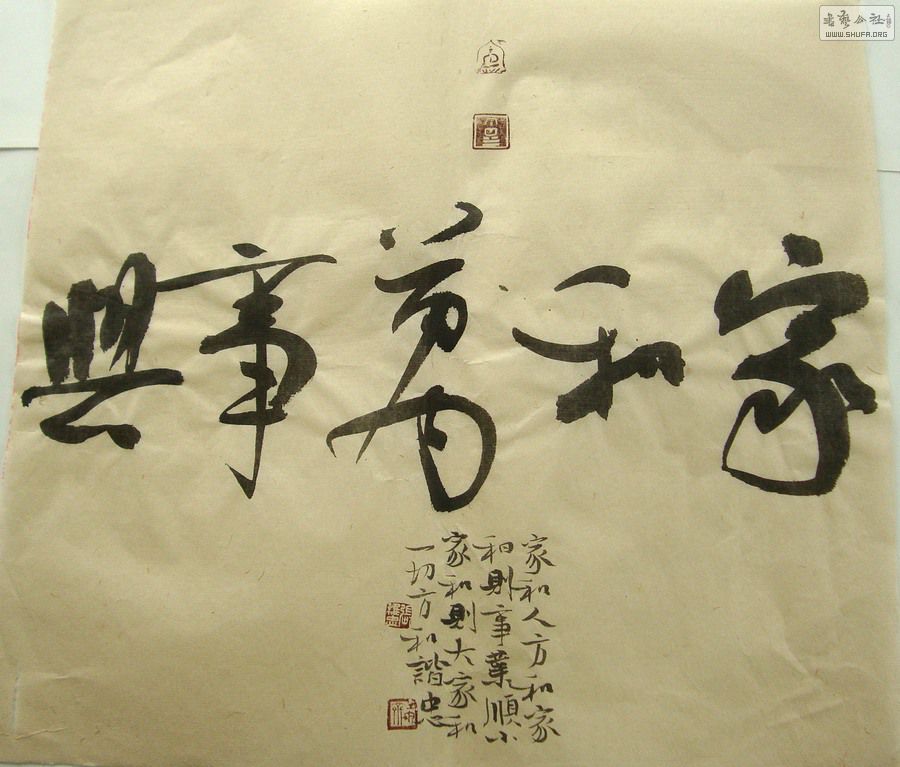 家和萬事興
家和人方和家
和則事業順小
家和則大家和
一切方和諧忠
WWW.SHUFA.ORG